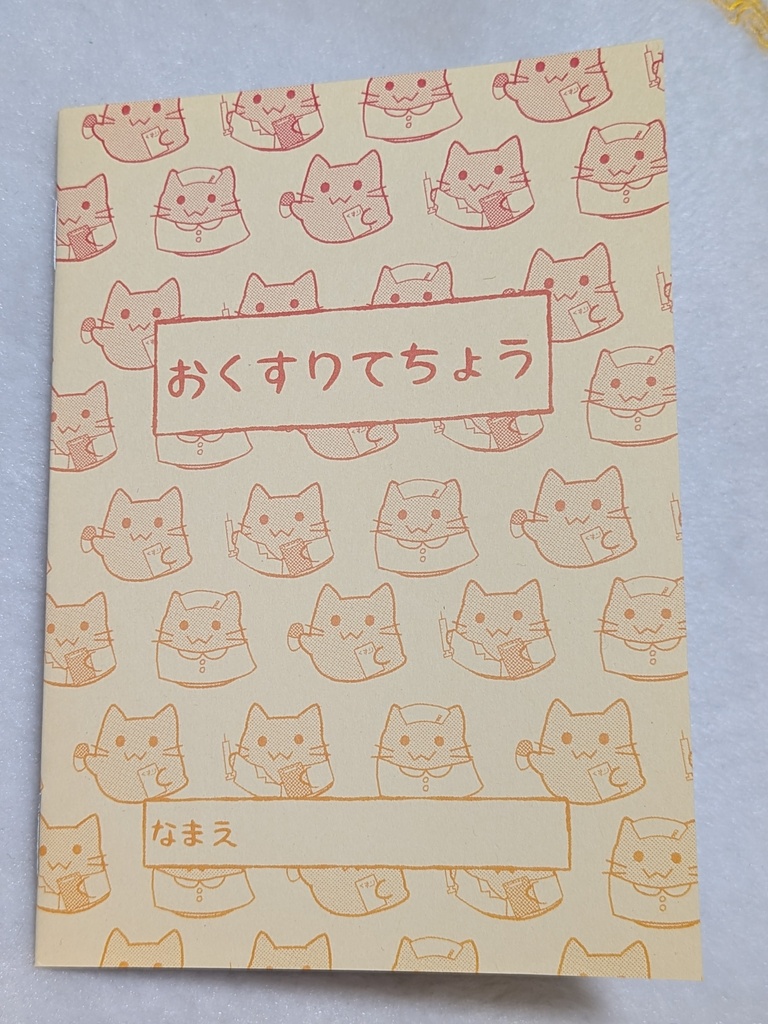 おくすりてちょう
なまえ